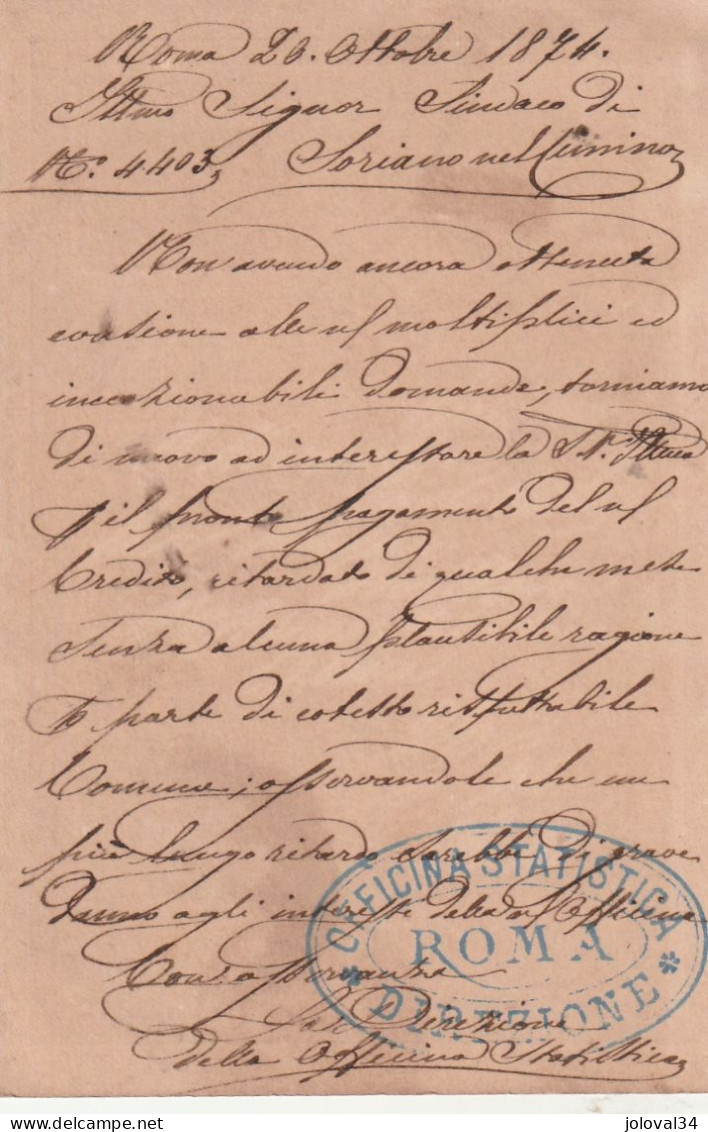 Roma 20. Ottobre 1874.
Illmo Signor Sindaco di
No. 4403. Soriano nel Cimino
Non avendo ancora ottenuta
evasione alle nf moltiplici ed
incezionabili domande, torniamo
di nuovo ad interessare la S. V. Illma
p il pronto pagamento del nf
Credito, ritardato di qualche mese
senza alcuna plausibile ragione
parte di cotesto rispettabile
Comune; osservandole che un
più lungo ritardo sarebbe di grave
danno agli interessi della nf Officina
Con osservanza
La Direzione
della Officina Statistica
OFFICINA STATISTICA
ROMA
* DIREZIONE *
joloval34